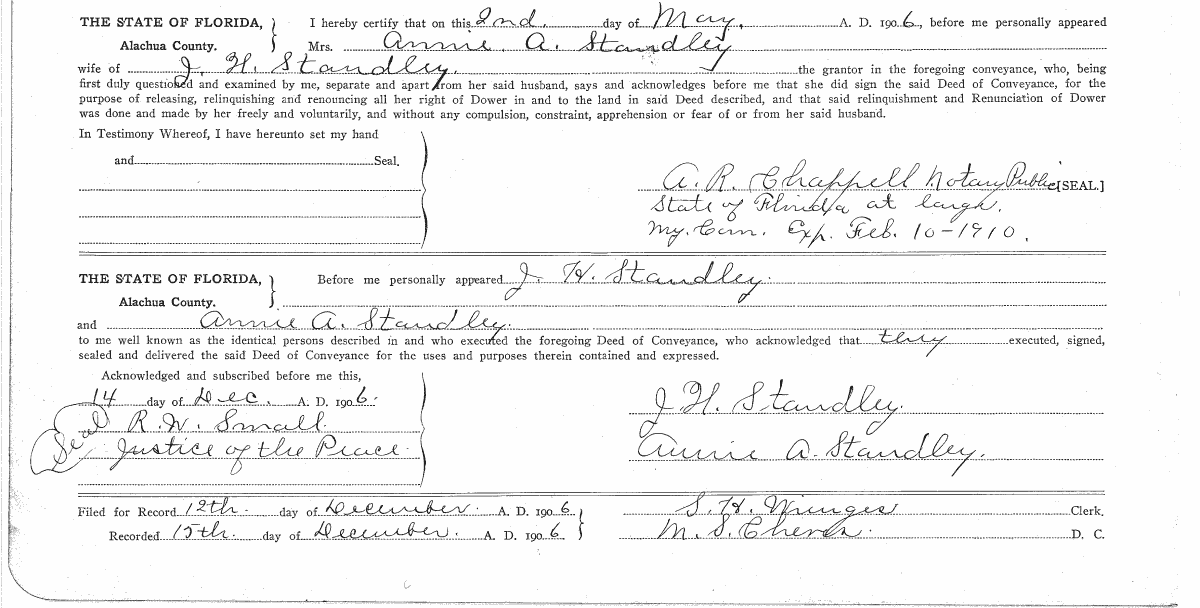 THE STATE OF FLORIDA, } I hereby certify that on this 2nd. day of May, A. D. 1906, before me personally appeared
Alachua County. Mrs. Annie A. Standley
wife of J. H. Standley. the grantor in the foregoing conveyance, who, being
first duly questioned and examined by me, separate and apart from her said husband, says and acknowledges before me that she did sign the said Deed of Conveyance, for the
purpose of releasing, relinquishing and renouncing all her right of Dower in and to the land in said Deed described, and that said relinquishment and Renunciation of Dower
was done and made by her freely and voluntarily, and without any compulsion, constraint, apprehension or fear of or from her said husband.
In Testimony Whereof, I have hereunto set my hand
and Seal.
A. R. Chappell Notary Public [SEAL.]
State of Florida at largh.
My. Com. Exp. Feb. 10-1910.
THE STATE OF FLORIDA, } Before me personally appeared J. H. Standley.
Alachua County.
and Annie A. Standley.
to me well known as the identical persons described in and who executed the foregoing Deed of Conveyance, who acknowledged that they executed, signed,
sealed and delivered the said Deed of Conveyance for the uses and purposes therein contained and expressed.
Acknowledged and subscribed before me this,
14 day of Dec. A. D. 1906.
J. H. Standley.
Seal R. W. Small.
Justice of the Peace.
Annie A. Standley.
Filed for Record 12th. day of December. A. D. 1906 } S. H. Wienges Clerk.
Recorded 15th. day of December. A. D. 1906 M. S. Cheves D. C.